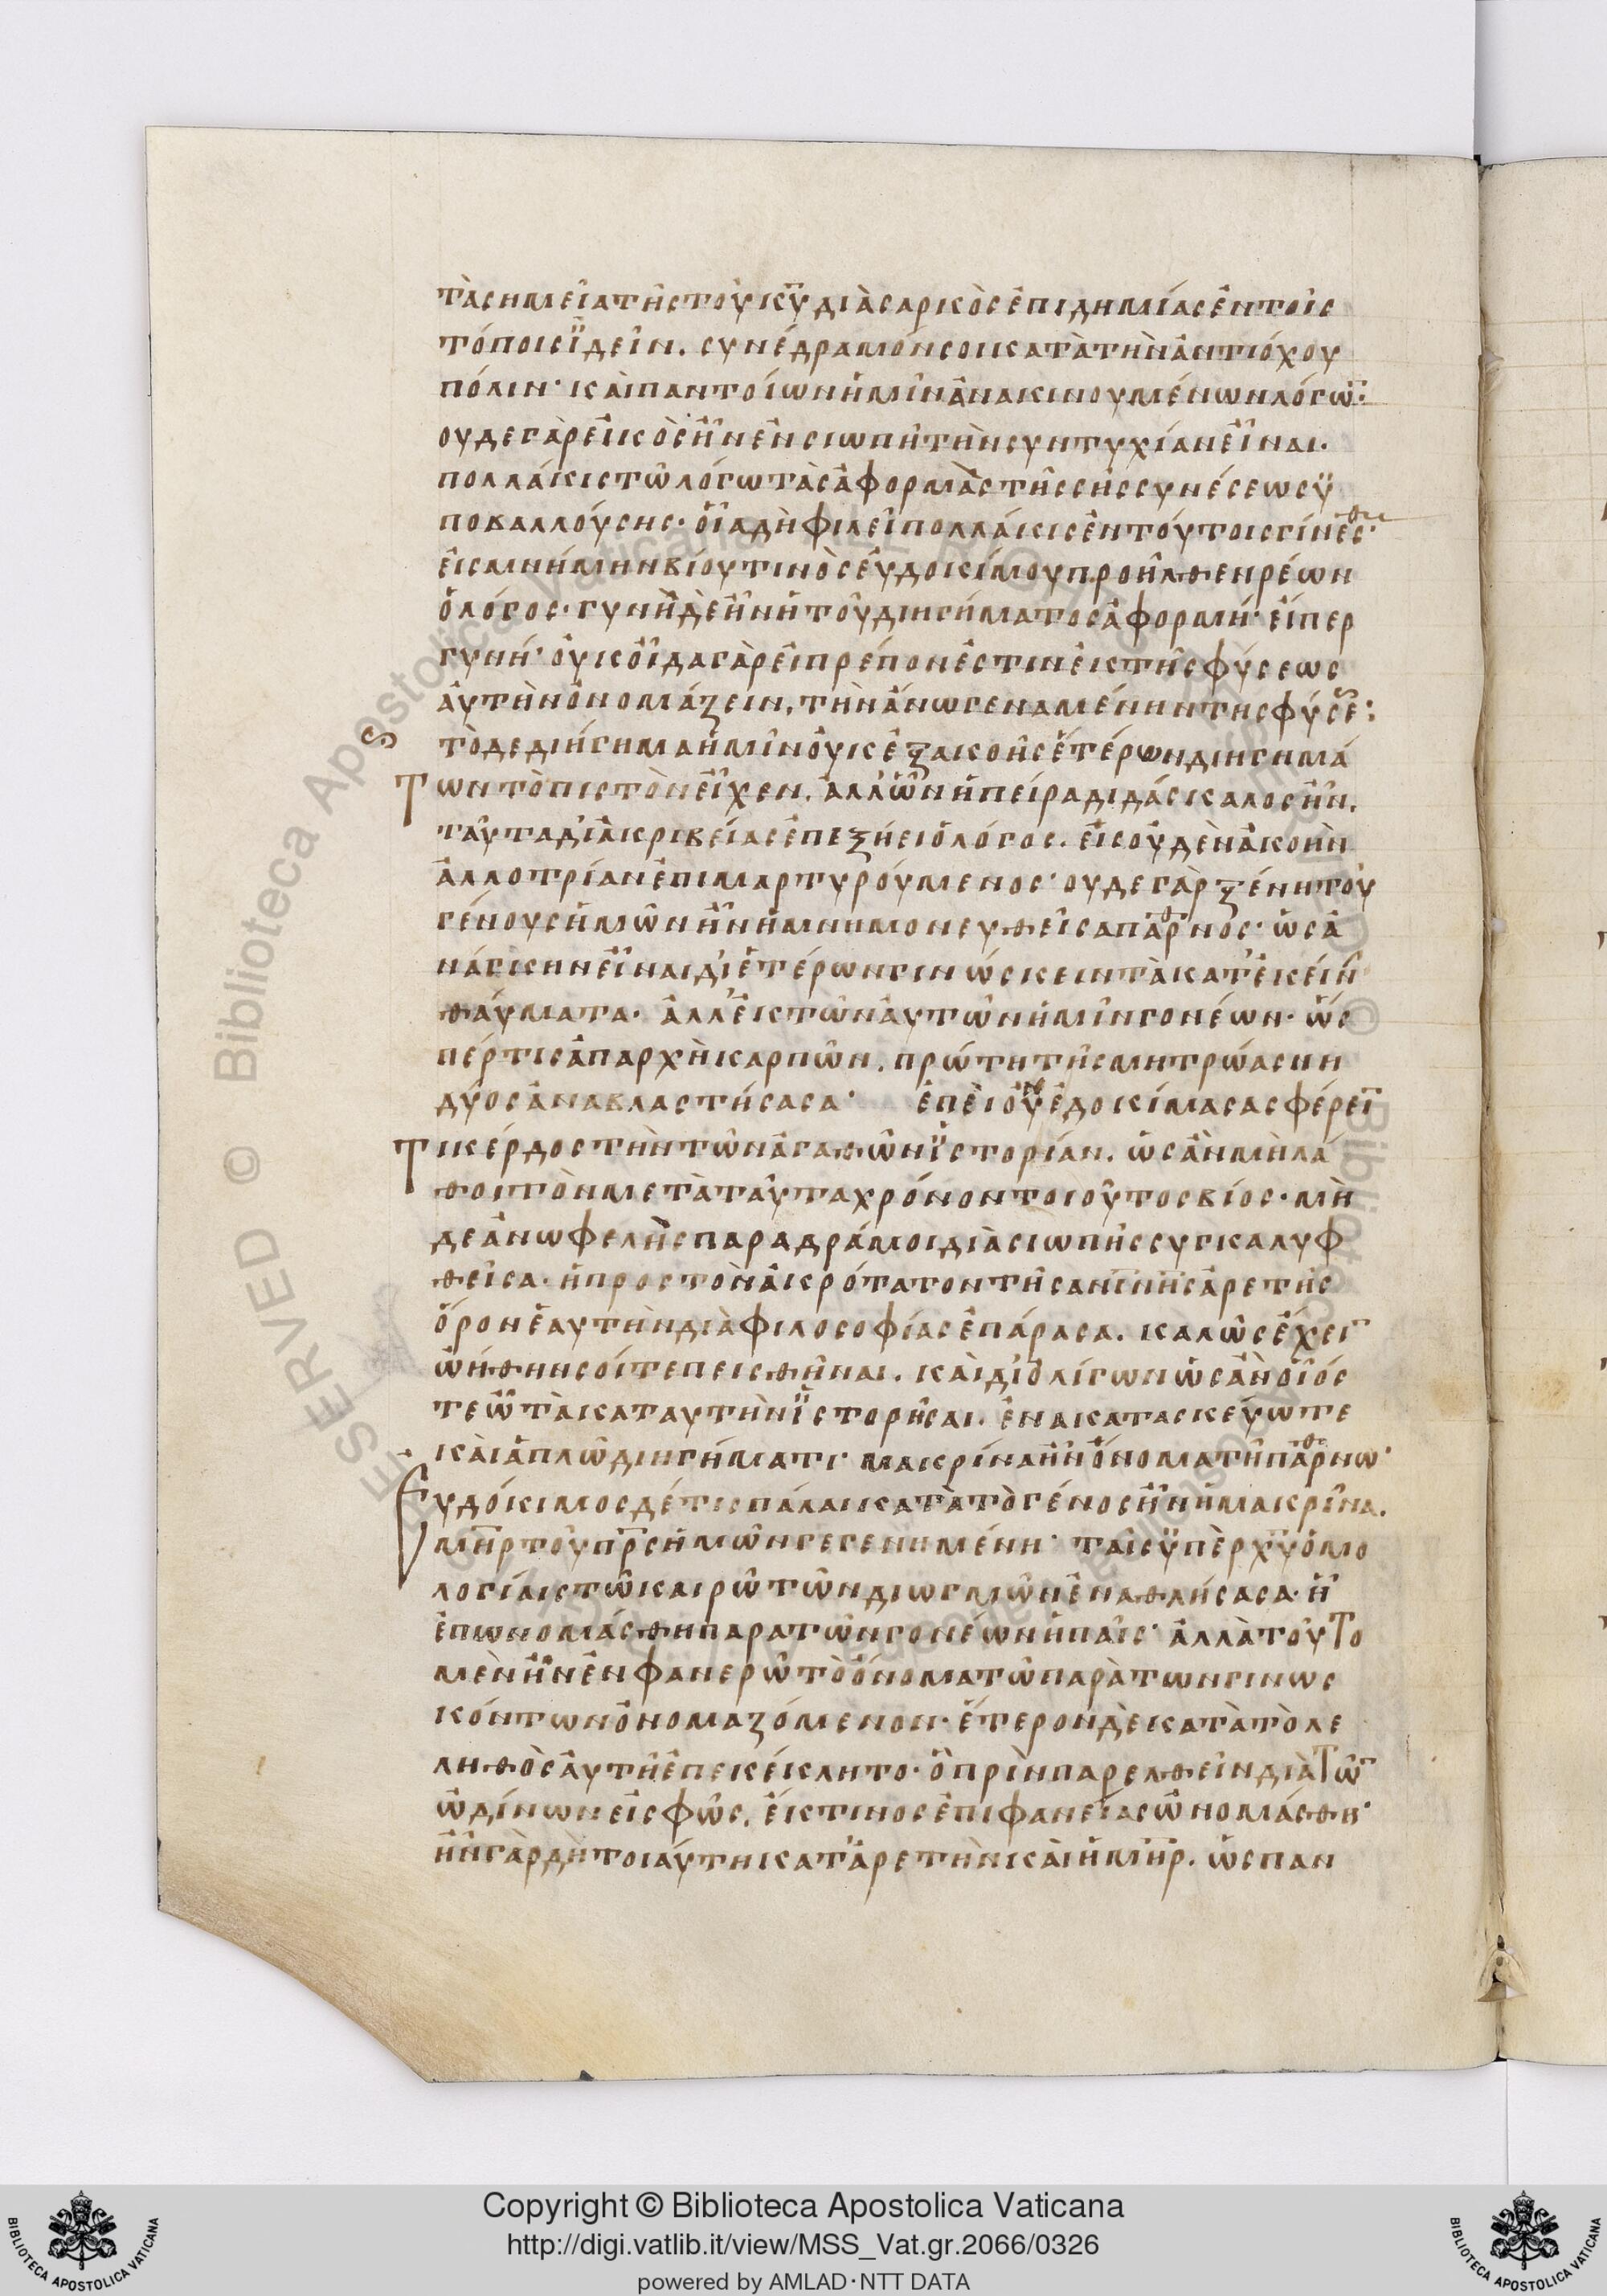 τὰσημεῖατῆστοῦκ̅υ̅διὰσαρκὸσἐπιδημίασἐντοῖσ
τόποισἰ̈δεῖν. συνέδραμόνσοικατὰτὴνἀντιόχου
πόλιν· καὶπαντοίωνἡμῖνἀνακινουμένωνλόγω̅·
ουδεγὰρεἰκὸσἦνἐνσιωπῆτὴνσυντυχίανεἶναι.
πολλάκιστῶλόγωτὰσἀφορμὰστῆσσῆσσυνέσεωσϋ
ποβαλλούσησ· οἷαδὴφιλεῖπολλάκισἐντούτοισγίνεσθαι·
εἰσμνήμηνβίουτινὸσεὐδοκίμουπροῆλθενρέων
ὁλόγοσ· γυνὴδὲἦνἡτοῦδιηγήματοσἀφορμή· εἴπερ
γυνή· οὐκοἶδαγὰρεἰπρέπονἐστινἐκτῆσφύσεωσ
ἀυτὴνὀνομάζειν, τὴνἄνωγεναμένηντησφύσε̅:
τὸδεδιήγημαἡμῖνοὐκἐξακοῆσἑτέρωνδιηγημά
Τωντὸπιστὸνεἶχεν. ἀλλ'ὧνἡπείραδιδάσκαλοσἦν.
ταῦταδϊἀκριβείασἐπεξήειὁλόγοσ. εἰσοὐδὲνἀκοὴν
ἀλλοτρίανἐπιμαρτυρούμενοσ· ουδεγὰρξένητοῦ
γένουσἡμῶνἦνἡμνημονευθεῖσαπαρθνοσ· ὡσἀ
νάγκηνεἶναιδι'ἑτέρωνγινώσκειντὰκατ'ἐκείν̅
θαύματα· ἀλλ'ἐκτῶνἀυτῶνἡμῖνγονέων· ὥσ
πέρτισἀπαρχὴκαρπῶν. πρώτητῆσμητρώασνη
δύοσἀναβλαστήσασα· ἐπεὶοὖνἐδοκίμασασφέρει̅
Τικέρδοστὴντῶνἀγαθῶνἱ̈στορίαν. ὡσἂνμὴλά
θοιτὸνμετὰταῦταχρόνοντοιοῦτοσβίοσ· μὴ
δεἀνωφελὴσπαραδράμοιδιὰσιωπῆσσυγκαλυφ
θεῖσα· ἡπροστὸνἀκρότατοντῆσα̅ν̅ι̅νησἀρετῆσ
ὅρονἑαυτὴνδιὰφιλοσοφίασἐπάρασα. καλῶσἔχει̅
ὠήθηνσοίτεπεισθῆναι. καὶδι'ὀλίγωνὡσἂνοἷόσ
τεὦτὰκαταυτὴνἱ̈στορῆσαι. ἐνακατασκεύωτε
καὶἁπλῶδιηγήματι· μακρίναἦνὄνοματῆπαρθνω·
Ευδόκιμοσδέτισπάλαικατὰτὸγένοσἦνἡμακρῖνα.
μ̅η̅ρ̅τοῦπ̅ρ̅σἡμῶνγεγενημένη· ταῖσὑπὲρχ̅υ̅ὁμο
λογίαιστῶκαιρῶτῶνδιωγμῶνἐναθλήσασα· ἧ
ἐπωνομάσθηπαρατῶνγονέωνἡπαῖσ· ἀλλὰτοῦΤο
μὲνἦνἐνφανερῶτὸὄνοματῶπαρὰτωνγινωσ
κόντωνὀνομαζόμενον· ἕτερονδὲκατὰτὸλε
ληθὸσἀυτῆἐπεκέκλητο· ὃπρὶνπαρελθεῖνδιὰΤω̅
ὠδίνωνεἰσφῶσ. ἐκτινοσἐπιφανείασὠνομάσθη·
ἦνγὰρδὴτοιαύτηκατ'ἀρετὴνκαὶἡμ̅η̅ρ̅. ὡσπαν
Copyright © Biblioteca Apostolica Vaticana
http://digi.vatlib.it/view/MSS_Vat.gr.2066/0326
powered by AMLAD·NTT DATA